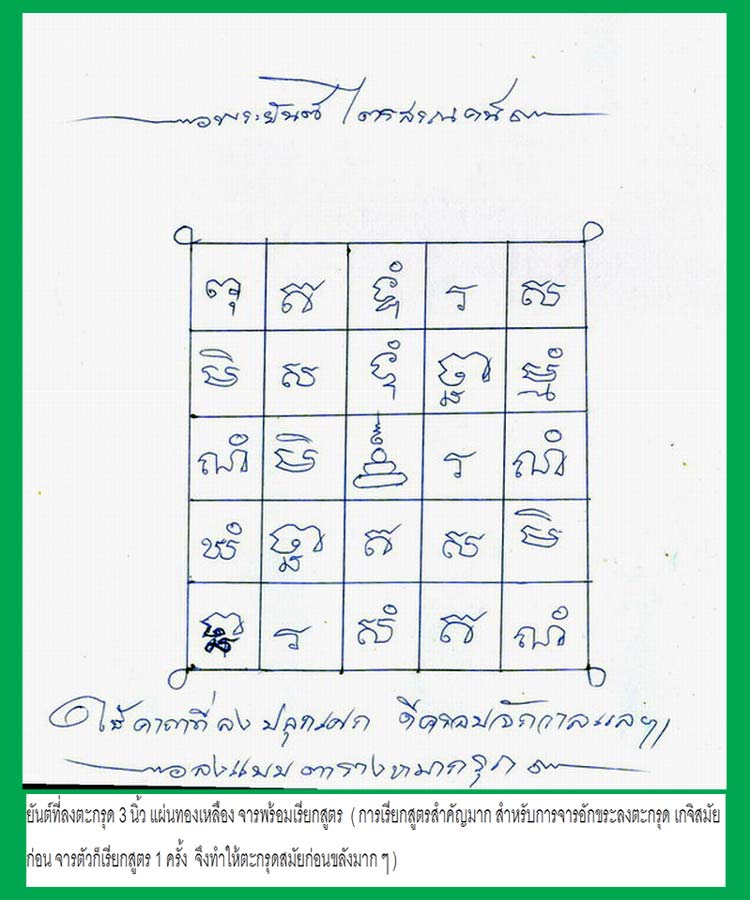 พระยันต์ ไตรสรณคมน์
ពុ ត ទ្ធំ រ ស
មិ ស ទ្ធំ ច្ឆា ម្មំ
ណំ មិ រ ណំ
ឃំ ច្ឆា ត ស មិ
រ សំ ត ណំ
ใช้คาถาที่ลง ปลุกเสก ดีครอบจักรวาลแลฯ
ลงแบบ ตารางหมากรุก
ยันต์ที่ลงตะกรุด 3 นิ้ว แผ่นทองเหลือง จารพร้อมเรียกสูตร ( การเรียกสูตรสำคัญมาก สำหรับการจารอักขระลงตะกรุด เกจิสมัย
ก่อน จารตัวก็เรียกสูตร 1 ครั้ง จึงทำให้ตะกรุดสมัยก่อนขลังมาก ๆ )